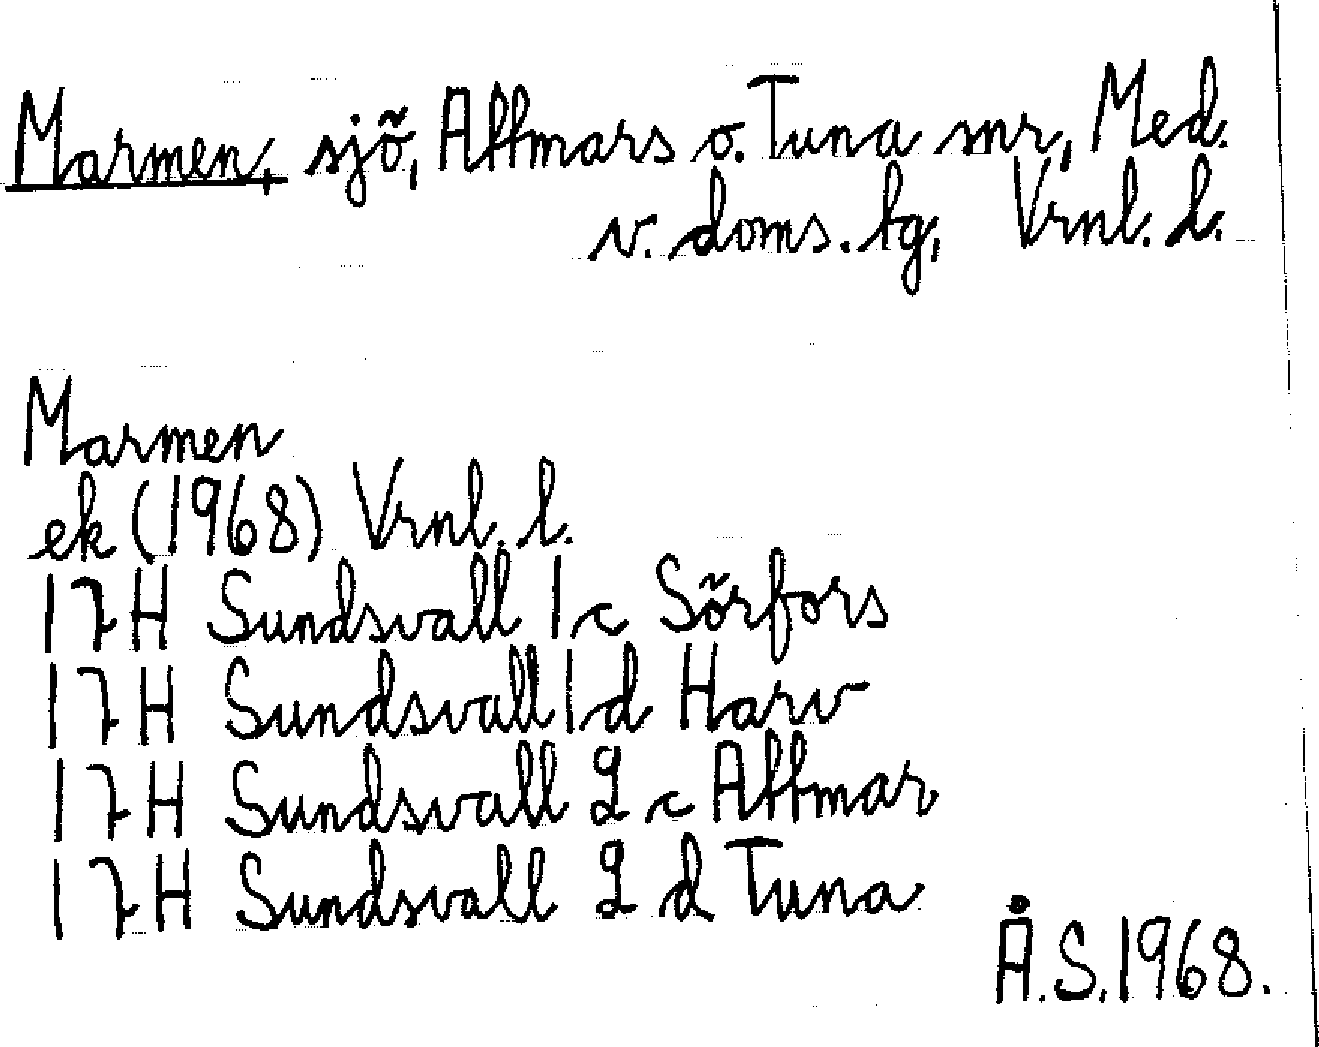 Marmen, sjö, Attmars o. Tuna snr, Med.
v. doms. tg, Vrnl. l.
Marmen
ek (1968) Vrnl. l.
17H Sundsvall 1 c Sörfors
17H Sundsvall 1 d Harv
17H Sundsvall 2 c Attmar
17H Sundsvall 2 d Tuna
Å.S. 1968.